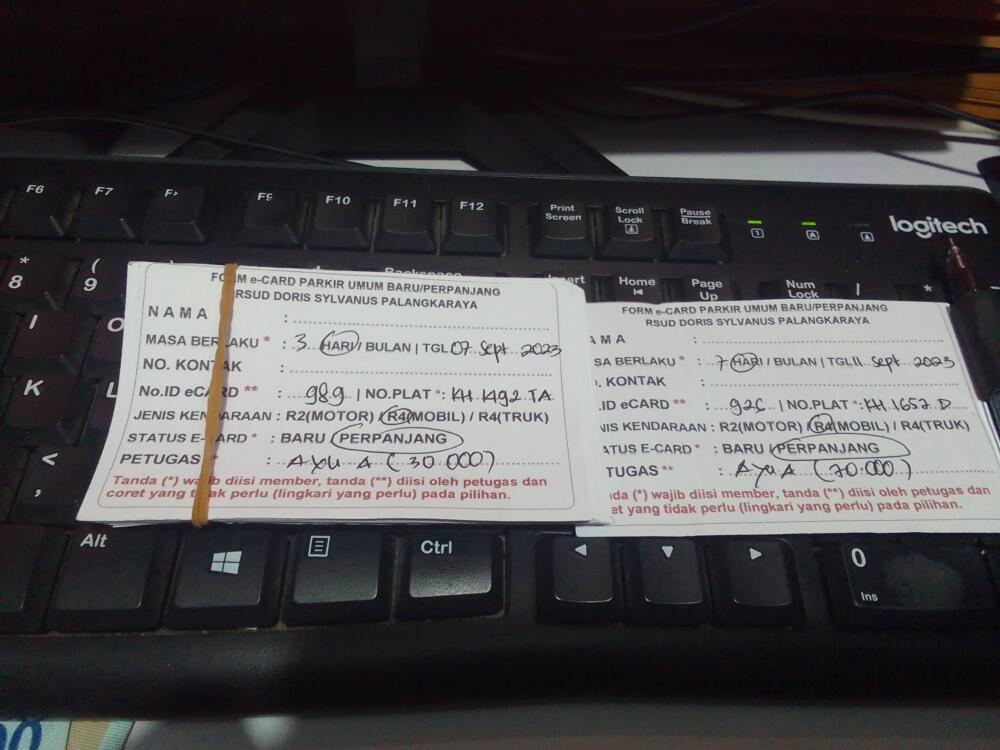 F6 F7 F9 F10 F11 F12 Print Screen Scroll Lock Pause Break
logitech
1 A
* 8 ( 9 Backspace Home Page Up Num Lock / *
I O
K L
<
,
FORM e-CARD PARKIR UMUM BARU/PERPANJANG
RSUD DORIS SYLVANUS PALANGKARAYA
NAMA :
MASA BERLAKU * : 3 HARI / BULAN | TGL 07 Sept 2023
NO. KONTAK :
No.ID eCARD ** : 989 | NO.PLAT *: KH 1492 TA
JENIS KENDARAAN : R2(MOTOR) / R4(MOBIL) / R4(TRUK)
STATUS E-CARD * : BARU / PERPANJANG
PETUGAS ** : AYU A (30.000)
Tanda (*) wajib diisi member, tanda (**) diisi oleh petugas dan
coret yang tidak perlu (lingkari yang perlu) pada pilihan.
FORM e-CARD PARKIR UMUM BARU/PERPANJANG
RSUD DORIS SYLVANUS PALANGKARAYA
AMA :
SA BERLAKU * : 7 HARI / BULAN | TGL 11 Sept 2023
. KONTAK :
.ID eCARD ** : | NO.PLAT *: KH 1657 D
NIS KENDARAAN : R2(MOTOR) / R4(MOBIL) / R4(TRUK)
ATUS E-CARD * : BARU / PERPANJANG
TUGAS ** : AYU A (70.000)
nda (*) wajib diisi member, tanda (**) diisi oleh petugas dan
et yang tidak perlu (lingkari yang perlu) pada pilihan.
Alt Ctrl 0
Ins